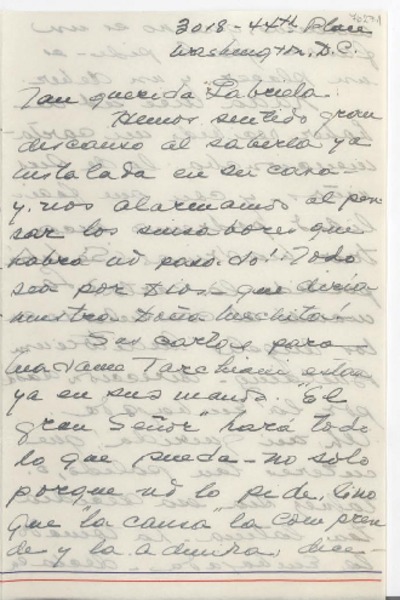 3018 - 44th Place
Washington, D.C.
Tan querida Gabriela:
Hemos sentido gran
descanso al saberla ya
instalada en su casa -
y nos alarmamos al pen
sar los sinsabores que
habrá Ud pasado! Todo
sea por Dios - que diría
nuestra Doña
Sus cartas para
Madame Tarchiani están
ya en sus manos. "El
gran Señor" hará todo
lo que pueda - no sólo
porque Ud lo pide, sino
que "la causa" la compren
de y la admira, dice -